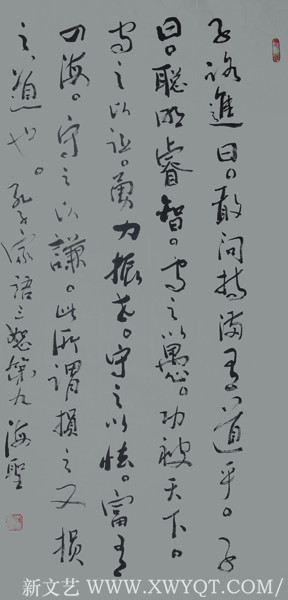 子路進曰。敢問持滿有道乎。子
曰。聰明睿智。守之以愚。功被天下。
守之以讓。勇力振世。守之以怯。富有
四海。守之以謙。此所謂損之又損
之道也。孔子家語三恕第九 海聖
新文艺 WWW.XWYQT.COM/